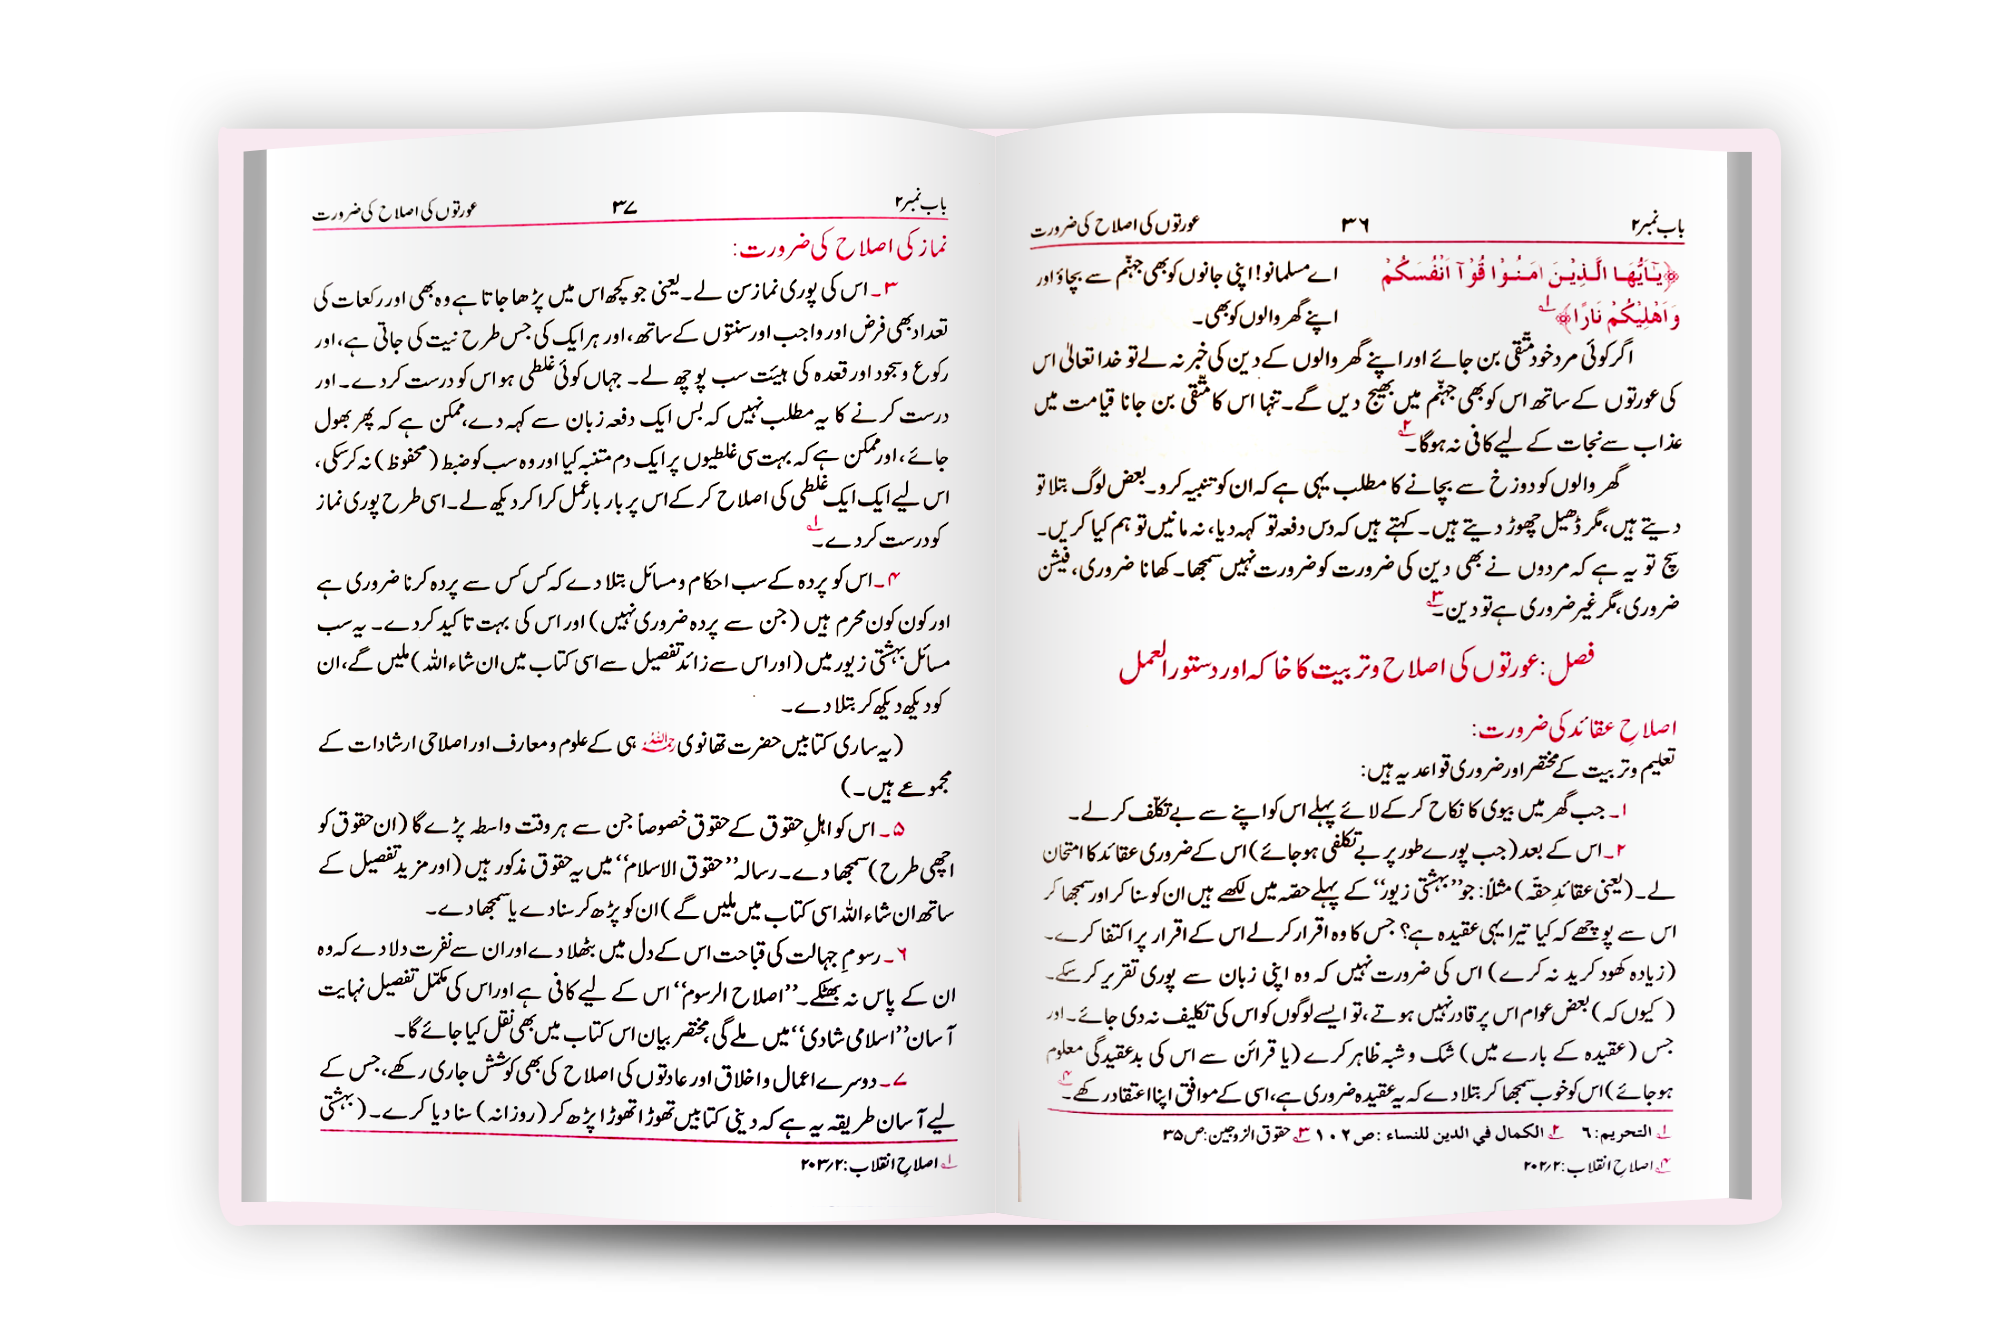 باب نمبر۲ ۳۶ عورتوں کی اصلاح کی ضرورت
﴿يٰٓاَيُّهَا الَّذِيْنَ اٰمَنُوْا قُوْٓا اَنْفُسَكُمْ اے مسلمانو! اپنی جانوں کو بھی جہنّم سے بچاؤ اور
وَاَهْلِيْكُمْ نَارًا﴾ ۱ اپنے گھر والوں کو بھی۔
اگر کوئی مرد خود متّقی بن جائے اور اپنے گھر والوں کے دین کی خبر نہ لے تو خدا تعالیٰ اس
کی عورتوں کے ساتھ اس کو بھی جہنّم میں بھیج دیں گے۔ تنہا اس کا متّقی بن جانا قیامت میں
عذاب سے نجات کے لیے کافی نہ ہوگا۔ ۲
گھر والوں کو دوزخ سے بچانے کا مطلب یہی ہے کہ ان کو تنبیہ کرو۔ بعض لوگ بتلا تو
دیتے ہیں، مگر ڈھیل چھوڑ دیتے ہیں۔ کہتے ہیں کہ دس دفعہ تو کہہ دیا، نہ مانیں تو ہم کیا کریں۔
سچ تو یہ ہے کہ مردوں نے بھی دین کی ضرورت کو ضرورت نہیں سمجھا۔ کھانا ضروری، فیشن
ضروری، مگر غیر ضروری ہے تو دین۔ ۳
فصل: عورتوں کی اصلاح و تربیت کا خاکہ اور دستور العمل
اصلاحِ عقائد کی ضرورت:
تعلیم و تربیت کے مختصر اور ضروری قواعد یہ ہیں:
۱۔ جب گھر میں بیوی کا نکاح کر کے لائے پہلے اس کو اپنے سے بے تکلّف کر لے۔
۲۔ اس کے بعد (جب پورے طور پر بے تکلفی ہو جائے) اس کے ضروری عقائد کا امتحان
لے۔ (یعنی عقائدِ حقّہ) مثلاً: جو ’’بہشتی زیور‘‘ کے پہلے حصّہ میں لکھے ہیں ان کو سنا کر اور سمجھا کر
اس سے پوچھے کہ کیا تیرا یہی عقیدہ ہے؟ جس کا وہ اقرار کر لے اس کے اقرار پر اکتفا کرے۔
(زیادہ کھود کرید نہ کرے) اس کی ضرورت نہیں کہ وہ اپنی زبان سے پوری تقریر کر سکے۔
(کیوں کہ) بعض عوام اس پر قادر نہیں ہوتے، تو ایسے لوگوں کو اس کی تکلیف نہ دی جائے۔ اور
جس (عقیدہ کے بارے میں) شک و شبہ ظاہر کرے (یا قرائن سے اس کی بدعقیدگی معلوم
ہو جائے) اس کو خوب سمجھا کر بتلا دے کہ یہ عقیدہ ضروری ہے، اسی کے موافق اپنا اعتقاد رکھے۔ ۴
۱ التحريم: ٦ ۲ الكمال في الدين للنساء: ص ۱۰۲ ۳ حقوق الزوجین: ص ۳۵
۴ اصلاحِ انقلاب: ۲۰۲/۲
باب نمبر۲ ۳۷ عورتوں کی اصلاح کی ضرورت
نماز کی اصلاح کی ضرورت:
۳۔ اس کی پوری نماز سن لے۔ یعنی جو کچھ اس میں پڑھا جاتا ہے وہ بھی اور رکعات کی
تعداد بھی فرض اور واجب اور سنتوں کے ساتھ، اور ہر ایک کی جس طرح نیت کی جاتی ہے، اور
رکوع و سجود اور قعدہ کی ہیئت سب پوچھ لے۔ جہاں کوئی غلطی ہو اس کو درست کر دے۔ اور
درست کرنے کا یہ مطلب نہیں کہ بس ایک دفعہ زبان سے کہہ دے، ممکن ہے کہ پھر بھول
جائے، اور ممکن ہے کہ بہت سی غلطیوں پر ایک دم متنبہ کیا اور وہ سب کو ضبط (محفوظ) نہ کر سکی،
اس لیے ایک ایک غلطی کی اصلاح کر کے اس پر بار بار عمل کرا کر دیکھ لے۔ اسی طرح پوری نماز
کو درست کر دے۔ ۱
۴۔ اس کو پردہ کے سب احکام و مسائل بتلا دے کہ کس کس سے پردہ کرنا ضروری ہے
اور کون کون محرم ہیں (جن سے پردہ ضروری نہیں) اور اس کی بہت تاکید کر دے۔ یہ سب
مسائل بہشتی زیور میں (اور اس سے زائد تفصیل سے اسی کتاب میں ان شاء اللہ) ملیں گے، ان
کو دیکھ دیکھ کر بتلا دے۔
(یہ ساری کتابیں حضرت تھانوی رحمہ اللہ ہی کے علوم و معارف اور اصلاحی ارشادات کے
مجموعے ہیں۔)
۵۔ اس کو اہلِ حقوق کے حقوق خصوصاً جن سے ہر وقت واسطہ پڑے گا (ان حقوق کو
اچھی طرح) سمجھا دے۔ رسالہ ’’حقوق الاسلام‘‘ میں یہ حقوق مذکور ہیں (اور مزید تفصیل کے
ساتھ ان شاء اللہ اسی کتاب میں ملیں گے) ان کو پڑھ کر سنا دے یا سمجھا دے۔
۶۔ رسومِ جہالت کی قباحت اس کے دل میں بٹھلا دے اور ان سے نفرت دلا دے کہ وہ
ان کے پاس نہ بھٹکے۔ ’’اصلاح الرسوم‘‘ اس کے لیے کافی ہے اور اس کی مکمّل تفصیل نہایت
آسان ’’اسلامی شادی‘‘ میں ملے گی، مختصر بیان اس کتاب میں بھی نقل کیا جائے گا۔
۷۔ دوسرے اعمال و اخلاق اور عادتوں کی اصلاح کی بھی کوشش جاری رکھے، جس کے
لیے آسان طریقہ یہ ہے کہ دینی کتابیں تھوڑا تھوڑا پڑھ کر (روزانہ) سنا دیا کرے۔ (بہشتی
۱ اصلاحِ انقلاب: ۲۰۳/۲